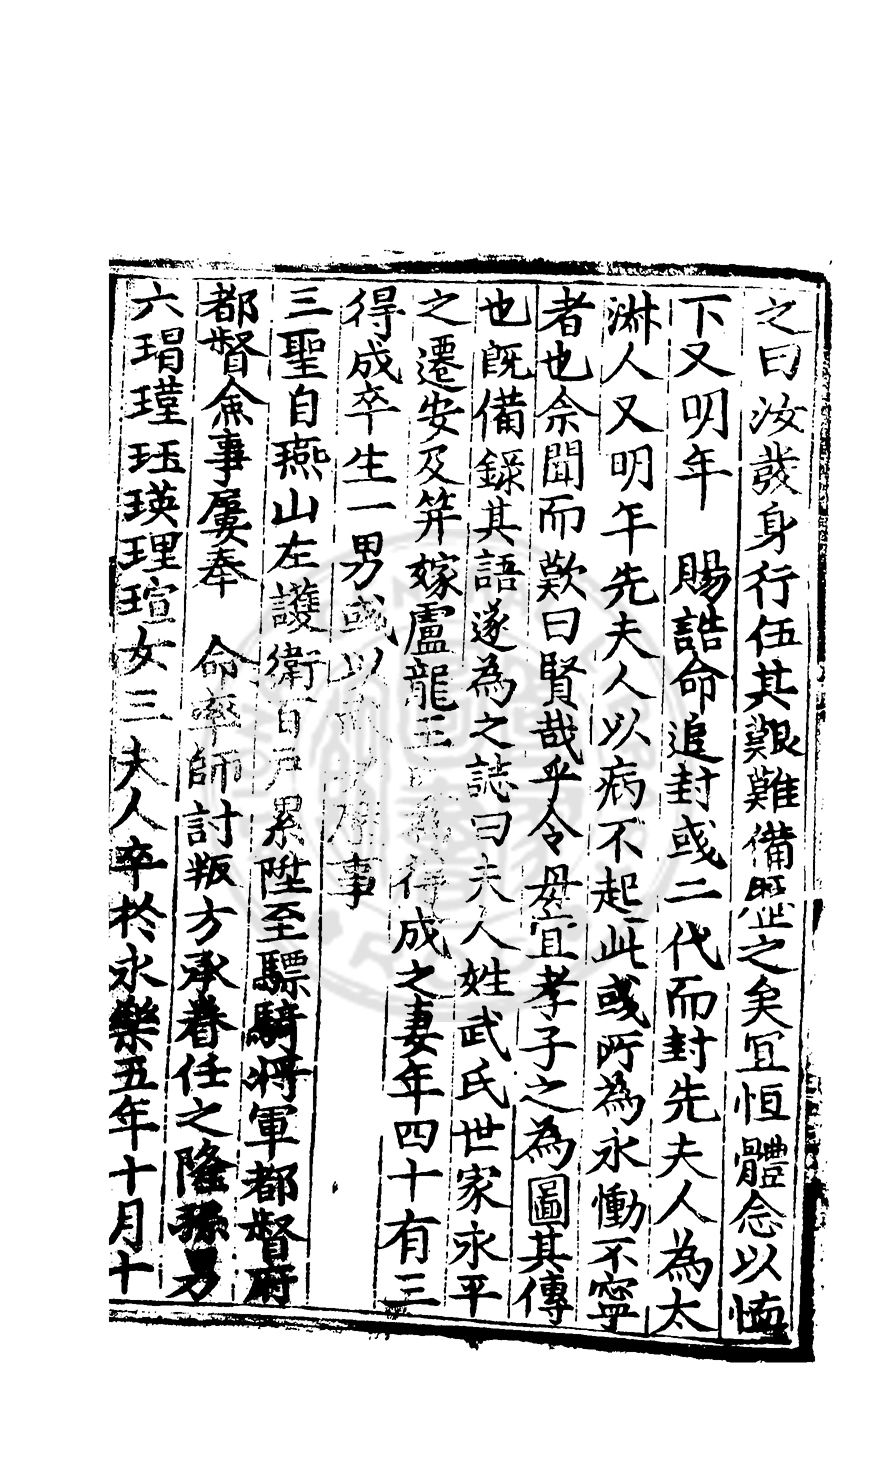 之曰汝發身行伍其艱難備歷之矣宜恒體念以恤
下又明年　賜誥命追封彧二代而封先夫人為太
淋人又明年先夫人以病不起此彧所為永慟不寧
者也余聞而歎曰賢哉乎令母宜孝子之為圖其傳
也旣備錄其語遂為之誌曰夫人姓武氏世家永平
之遷安及笄嫁盧龍王得成之妻年四十有三
得成卒生一男彧以事
三聖自燕山左護衛百戶累陞至驃騎將軍都督府
都督僉事屢奉　命率師討叛方承眷任之隆孫男
六瑁瑾珏瑛理瑄女三夫人卒於永樂五年十月十